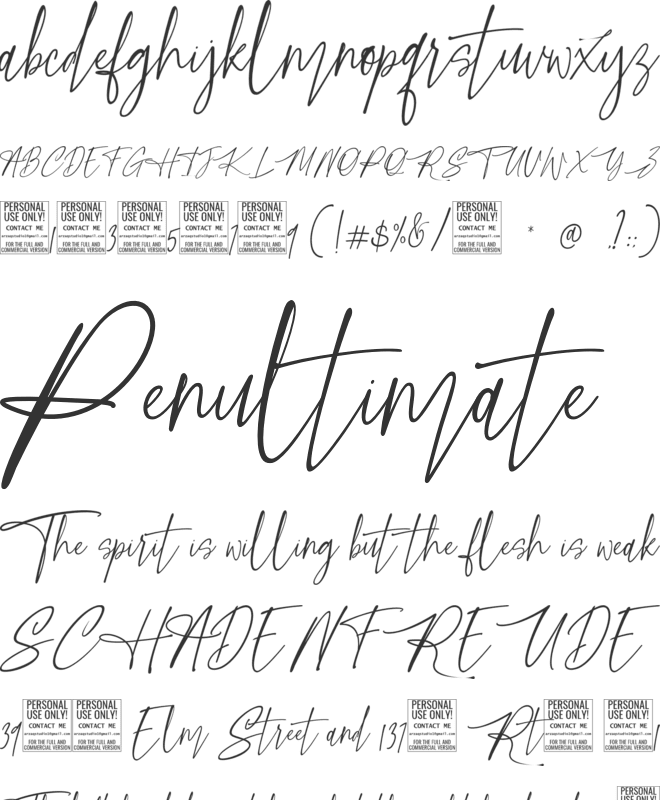 abcdefghijklmnopqrstuvwxyz
ABCDEFGHIJKLMNOPQRSTUVWXYZ
PERSONAL USE ONLY! CONTACT ME FOR THE FULL AND COMMERCIAL VERSION 1 PERSONAL USE ONLY! CONTACT ME FOR THE FULL AND COMMERCIAL VERSION 3 PERSONAL USE ONLY! CONTACT ME FOR THE FULL AND COMMERCIAL VERSION 5 PERSONAL USE ONLY! CONTACT ME FOR THE FULL AND COMMERCIAL VERSION 7 PERSONAL USE ONLY! CONTACT ME FOR THE FULL AND COMMERCIAL VERSION 9 (!#$%&/ PERSONAL USE ONLY! CONTACT ME FOR THE FULL AND COMMERCIAL VERSION * @ .?::)
Penultimate
The spirit is willing but the flesh is weak
SCHADENFREUDE
39 PERSONAL USE ONLY! CONTACT ME FOR THE FULL AND COMMERCIAL VERSION PERSONAL USE ONLY! CONTACT ME FOR THE FULL AND COMMERCIAL VERSION Elm Street and 137 PERSONAL USE ONLY! CONTACT ME FOR THE FULL AND COMMERCIAL VERSION Rt PERSONAL USE ONLY! CONTACT ME FOR THE FULL AND COMMERCIAL VERSION PERSONAL USE ONLY! CONTACT ME FOR THE FULL AND COMMERCIAL VERSION 1
PERSONAL